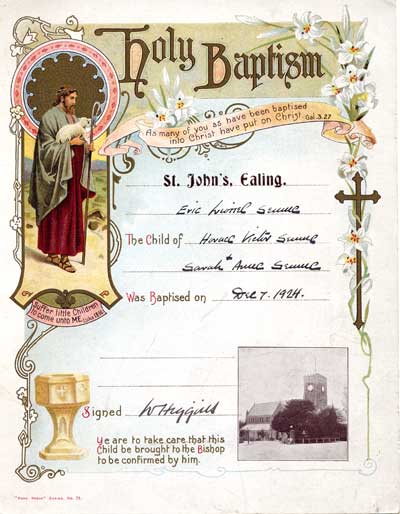 Holy Baptism
As many of you as have been baptised
into Christ have put on Christ. Gal. 3.27
St. John's, Ealing.
Eric Lionel
The Child of Horace Victor
Sarah & Anne
Was Baptised on Dec 7. 1924.
Suffer little Children
to come unto ME.
Signed
Ye are to take care that this
Child be brought to the Bishop
to be confirmed by him.
Series, No. 73.